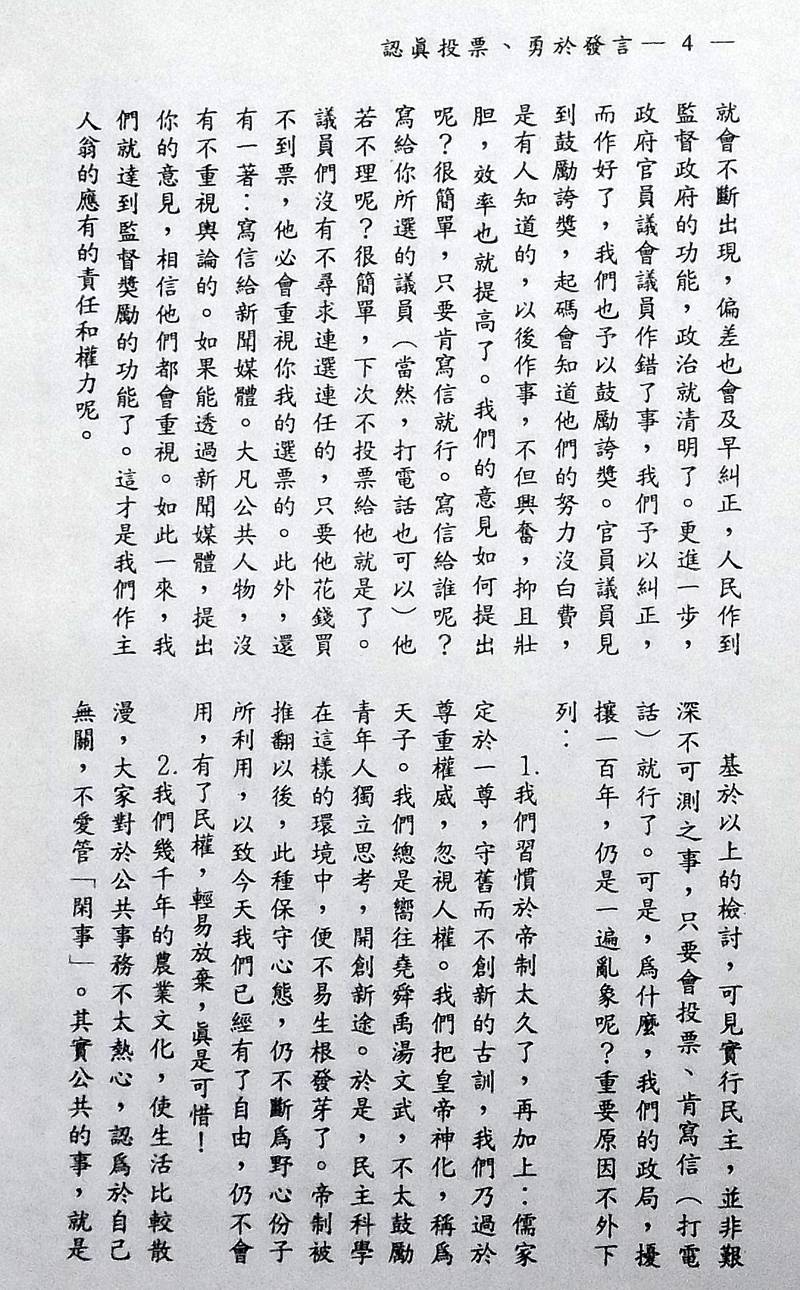 認眞投票、勇於發言— 4 —
就會不斷出現，偏差也會及早糾正，人民作到
監督政府的功能，政治就清明了。更進一步，
政府官員議會議員作錯了事，我們予以糾正，
而作好了，我們也予以鼓勵誇獎。官員議員見
到鼓勵誇獎，起碼會知道他們的努力沒白費，
是有人知道的，以後作事，不但興奮，抑且壯
胆，效率也就提高了。我們的意見如何提出
呢？很簡單，只要肯寫信就行。寫信給誰呢？
寫給你所選的議員（當然，打電話也可以）他
若不理呢？很簡單，下次不投票給他就是了。
議員們沒有不尋求連選連任的，只要他花錢買
不到票，他必會重視你我的選票的。此外，還
有一著：寫信給新聞媒體。大凡公共人物，沒
有不重視輿論的。如果能透過新聞媒體，提出
你的意見，相信他們都會重視。如此一來，我
們就達到監督獎勵的功能了。這才是我們作主
人翁的應有的責任和權力呢。
基於以上的檢討，可見實行民主，並非艱
深不可測之事，只要會投票、肯寫信（打電
話）就行了。可是，爲什麼，我們的政局，擾
攘一百年，仍是一遍亂象呢？重要原因不外下
列：
1.我們習慣於帝制太久了，再加上：儒家
定於一尊，守舊而不創新的古訓，我們乃過於
尊重權威，忽視人權。我們把皇帝神化，稱爲
天子。我們總是嚮往堯舜禹湯文武，不太鼓勵
青年人獨立思考，開創新途。於是，民主科學
在這樣的環境中，便不易生根發芽了。帝制被
推翻以後，此種保守心態，仍不斷爲野心份子
所利用，以致今天我們已經有了自由，仍不會
用，有了民權，輕易放棄，眞是可惜！
2.我們幾千年的農業文化，使生活比較散
漫，大家對於公共事務不太熱心，認爲於自己
無關，不愛管「閑事」。其實公共的事，就是